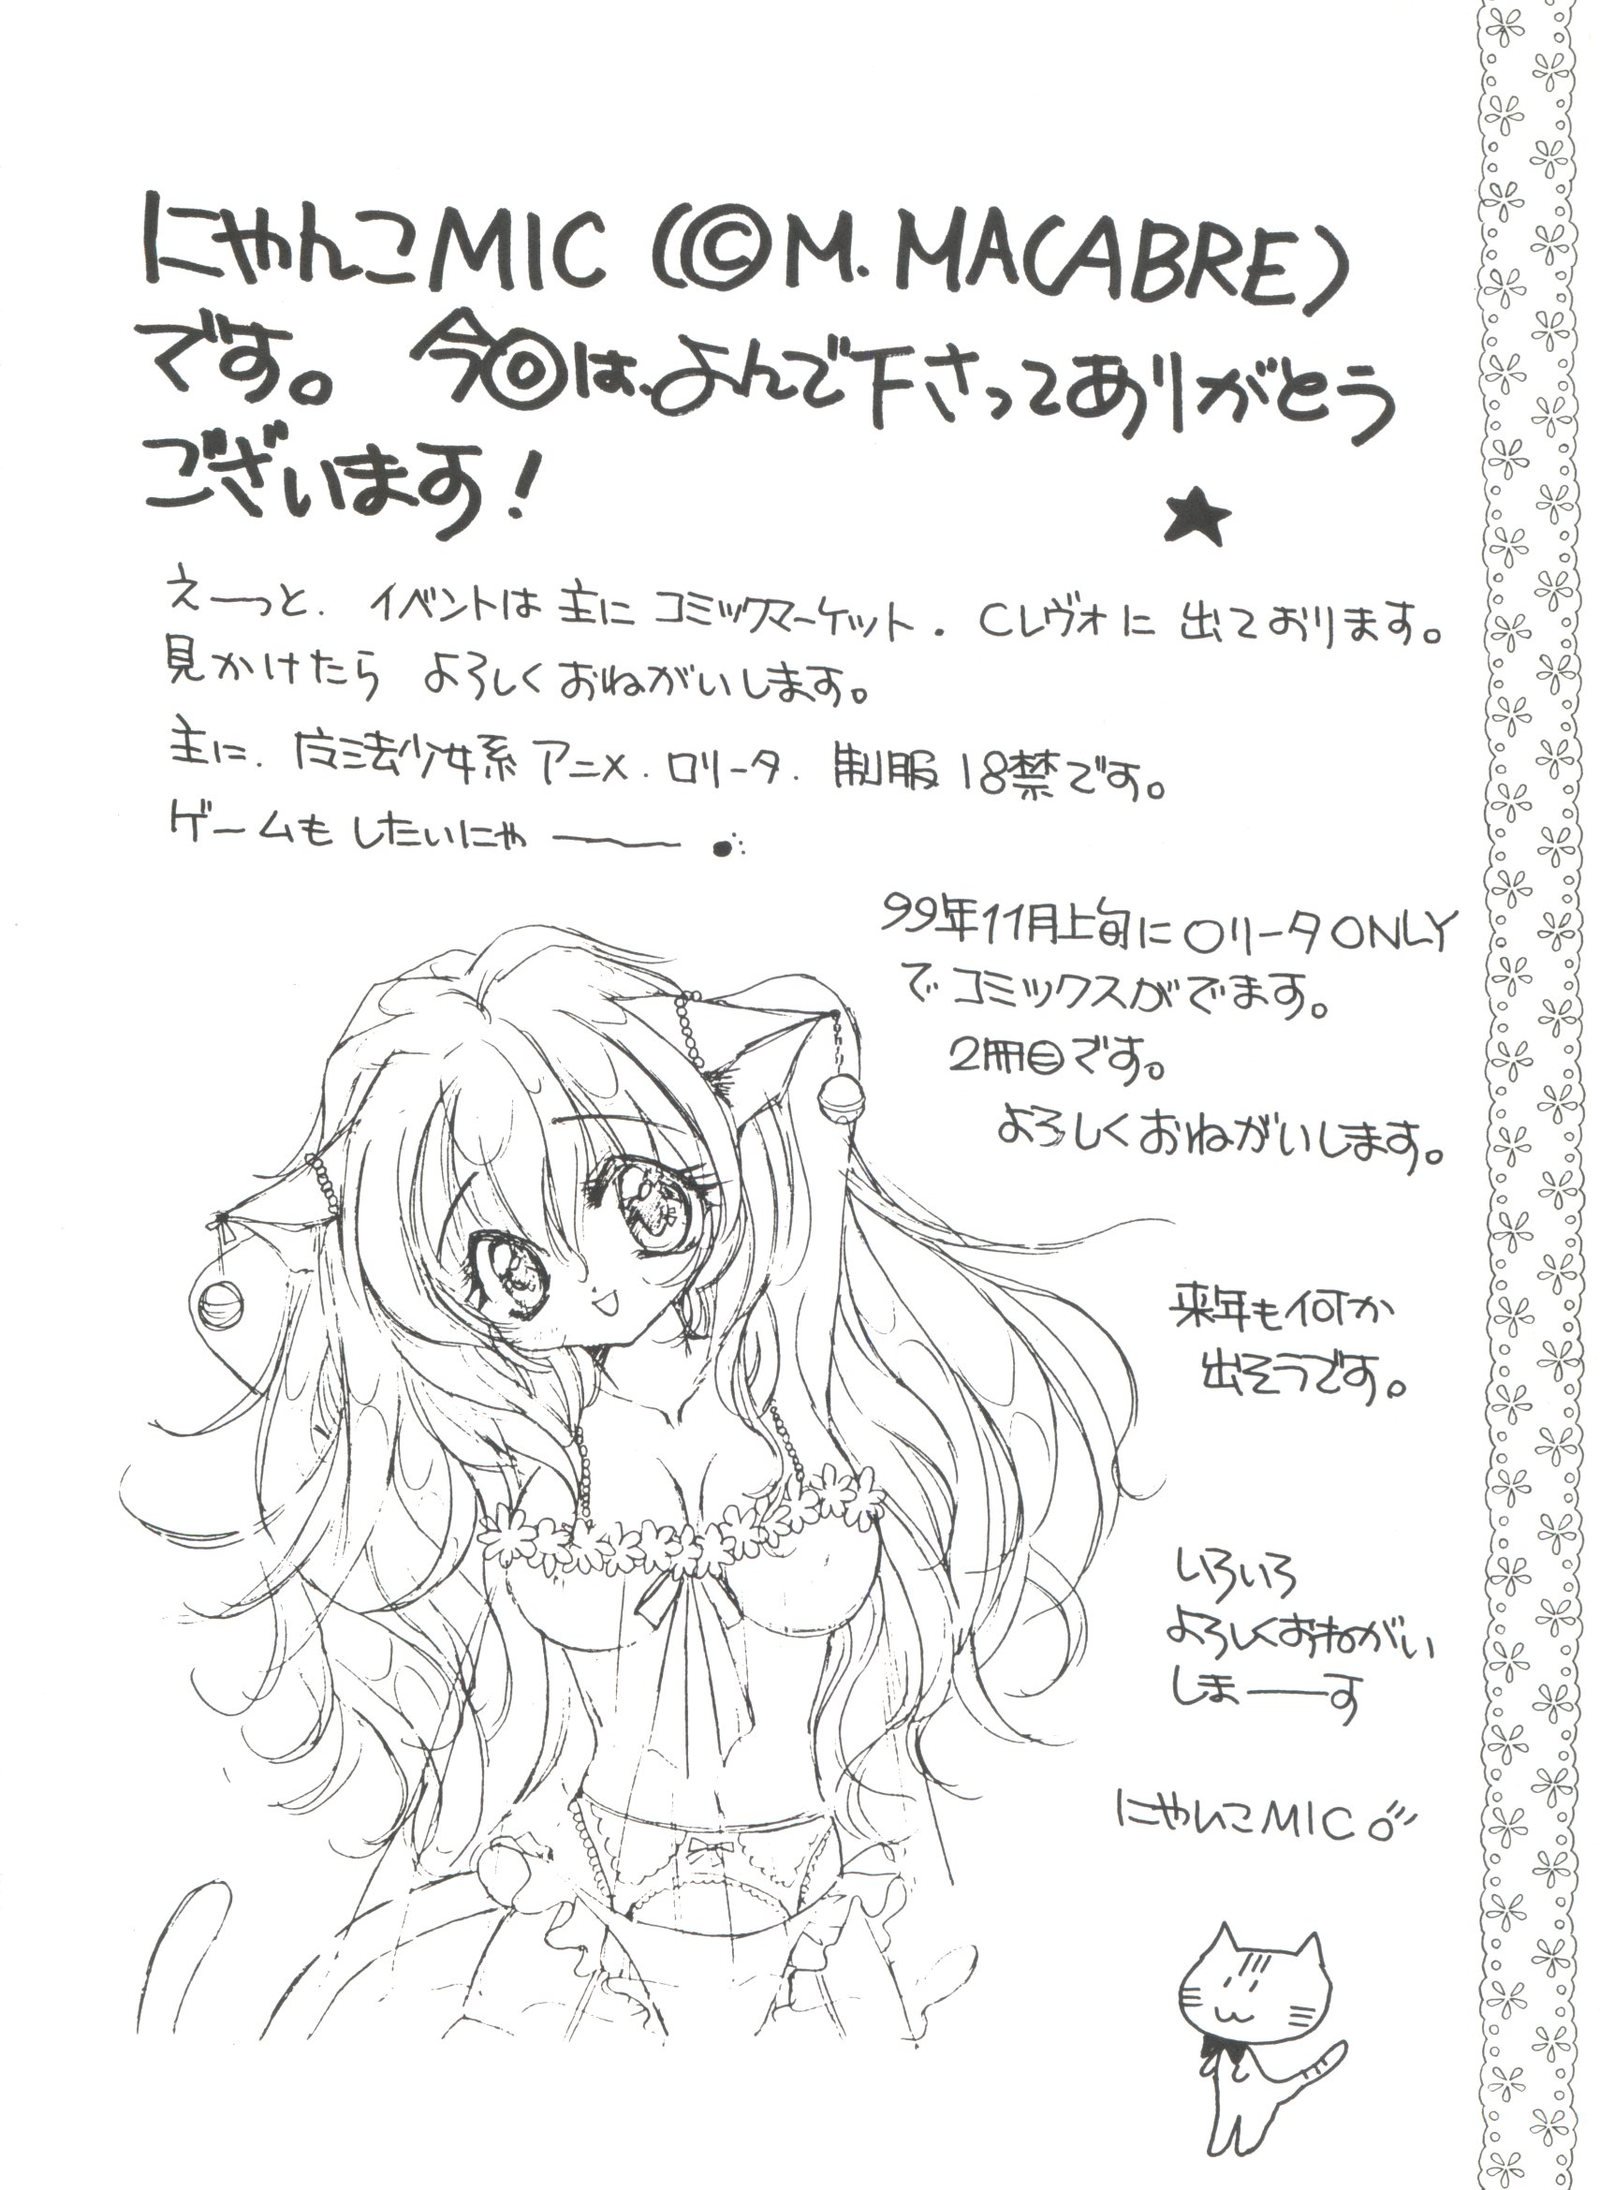 にゃんこMIC (©M. MACABRE)
です。 今回は、よんで下さってありがとう
ございます!
えーっと. イベントは 主に コミックマーケット. Cレヴォに 出ております。
見かけたら よろしくおねがいします。
主に. 魔法少女系 アニメ. ロリータ. 制服 18禁です。
ゲームも したいにゃ——
99年11月上旬に ロリータONLY
で コミックスがでます。
2冊目です。
よろしくおねがいします。
来年も何か
出そうです。
いろいろ
よろしくおねがい
しまーーす
にゃんこMIC